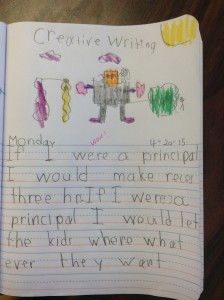 Creative Writing
Wow!
Monday 4-20-15
If I were a principal
I would make reces
three hr. If I were a
principal I would let
the kids where what
ever they want